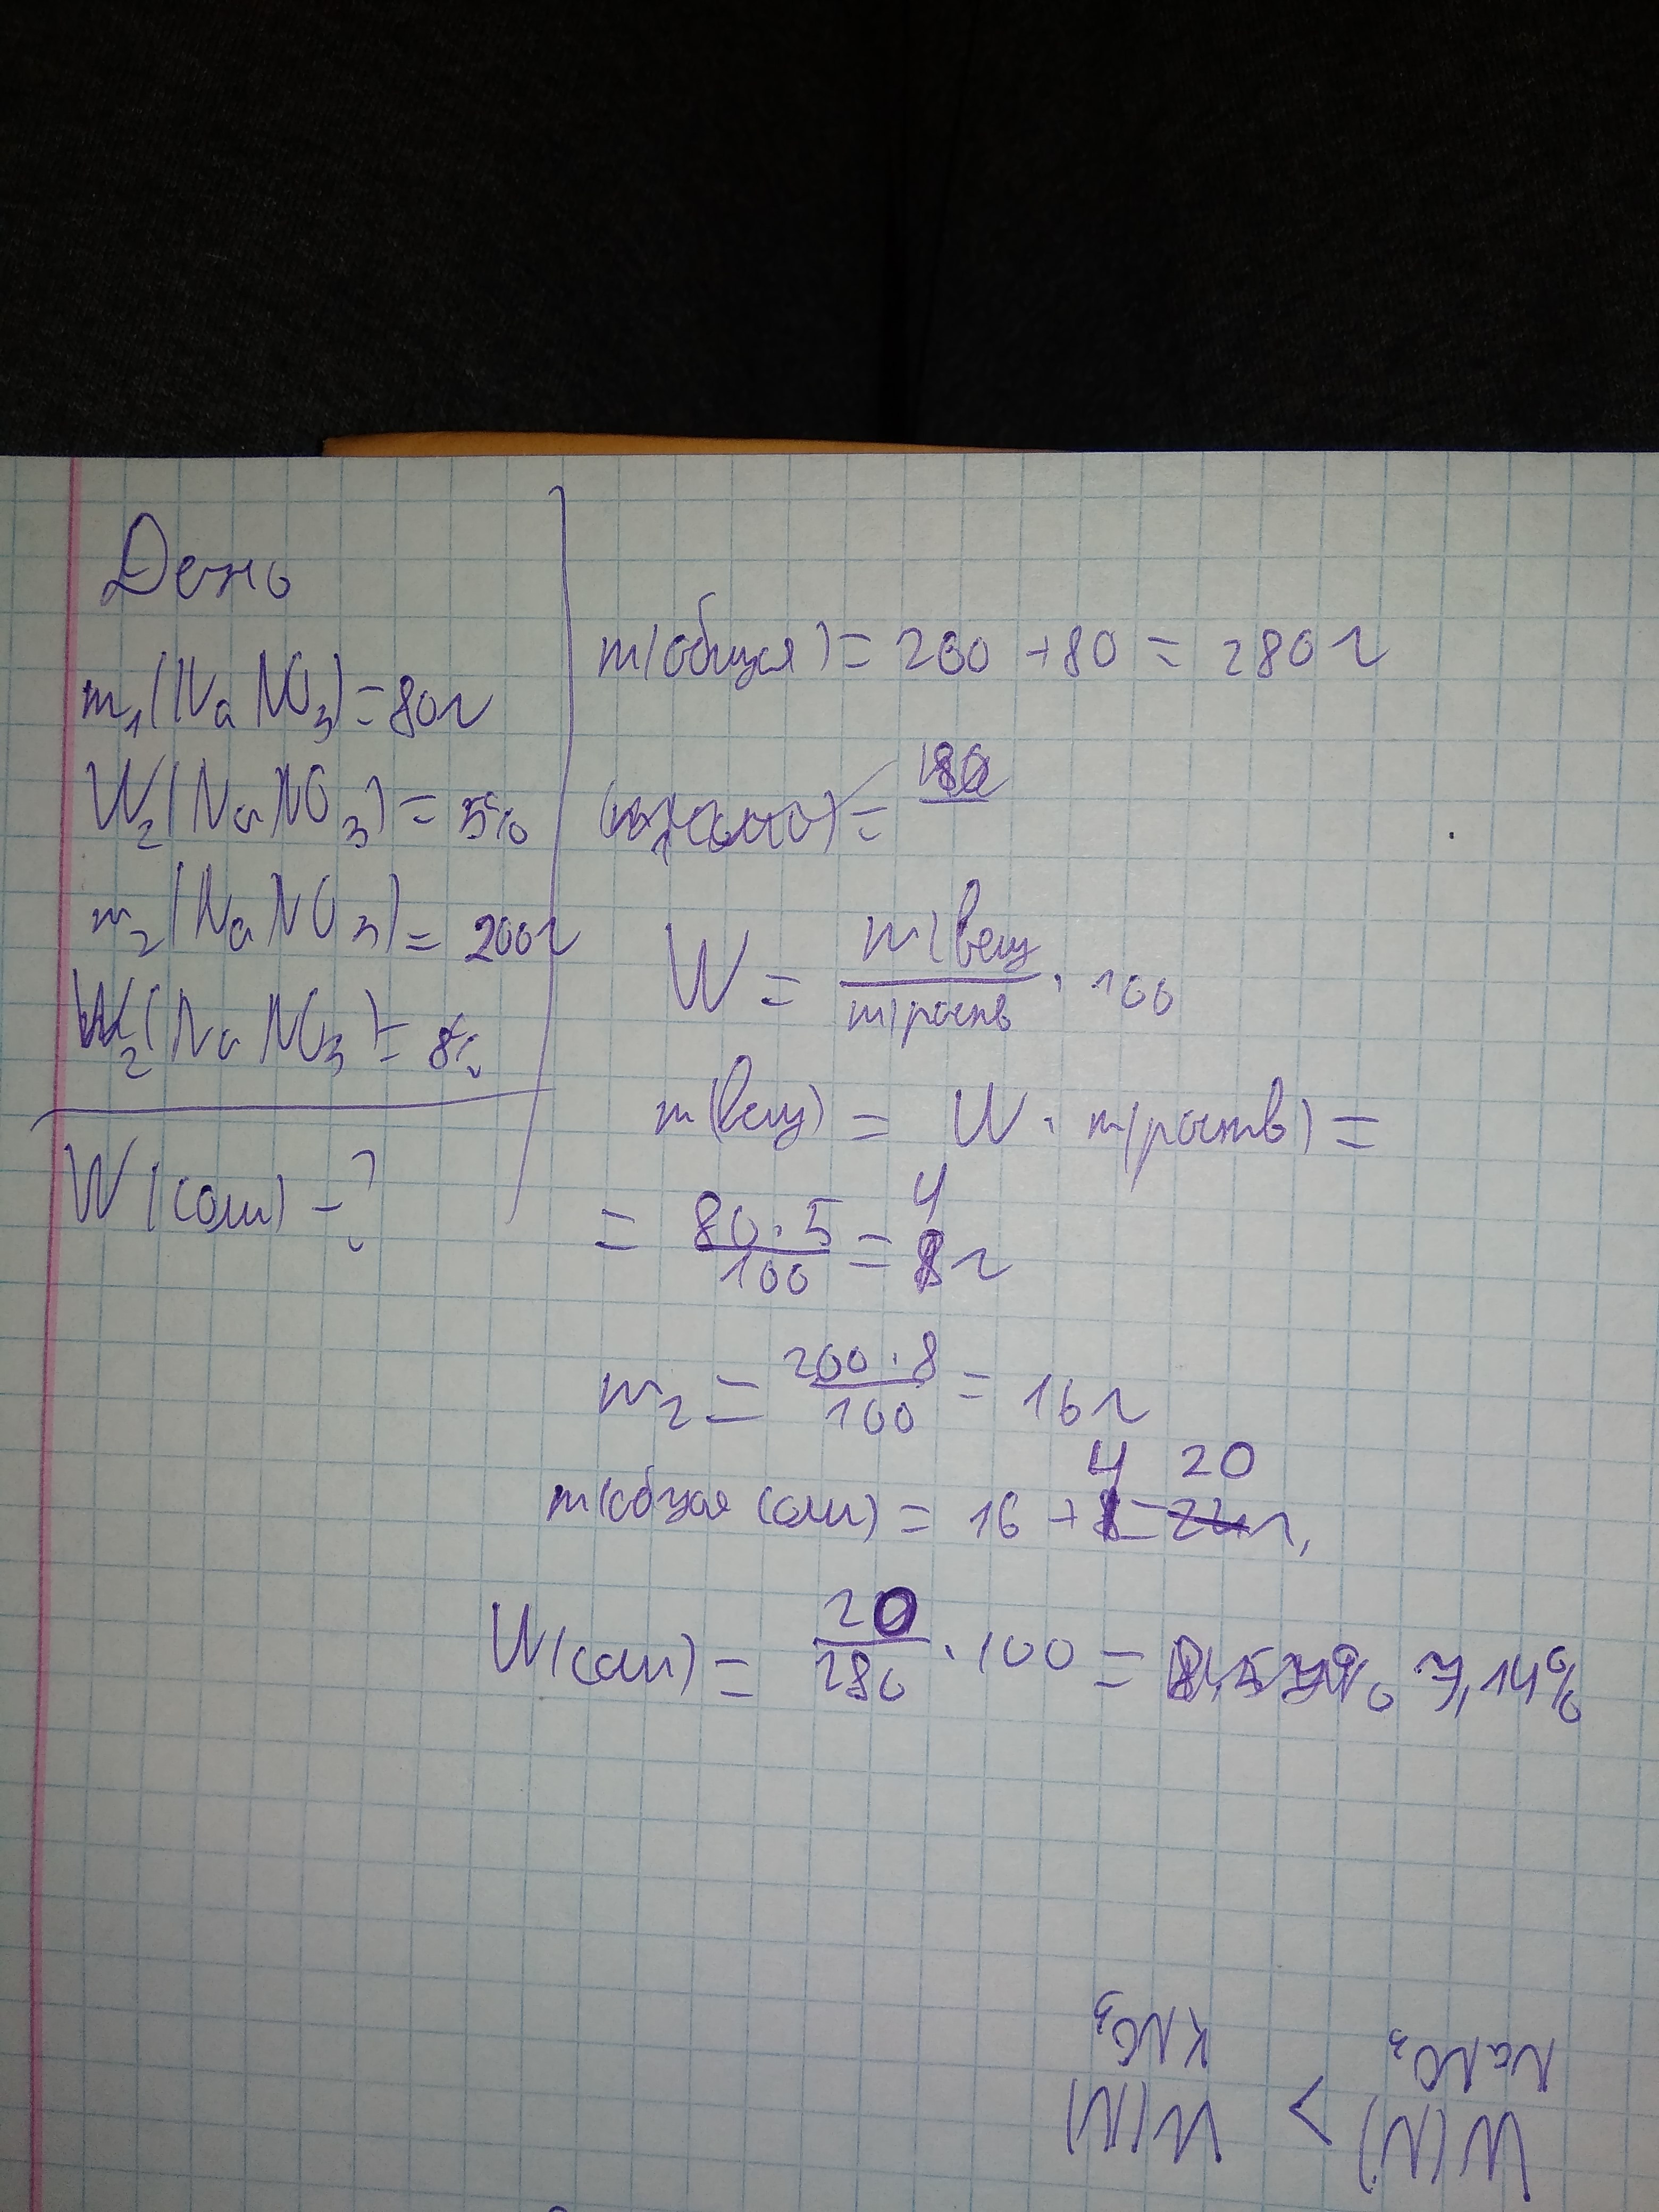 Дано
m₁(NaNO₃)=80г
W₂(NaNO₃)=5%
m₂(NaNO₃)=200г
W₂(NaNO₃)=8%
W(сол) - ?
m(общая)=200+80=280г
W = m(вещ / m(раств · 100
m(вещ) = W · m(раств) =
= 80·5 / 100 = 4 г
m₂ = 200·8 / 100 = 16г
m(общая соли) = 16 + 4 = 20 г,
W(соли) = 20 / 280 · 100 = 7,14%
W(N) NaNO₃ > W(N) KNO₃